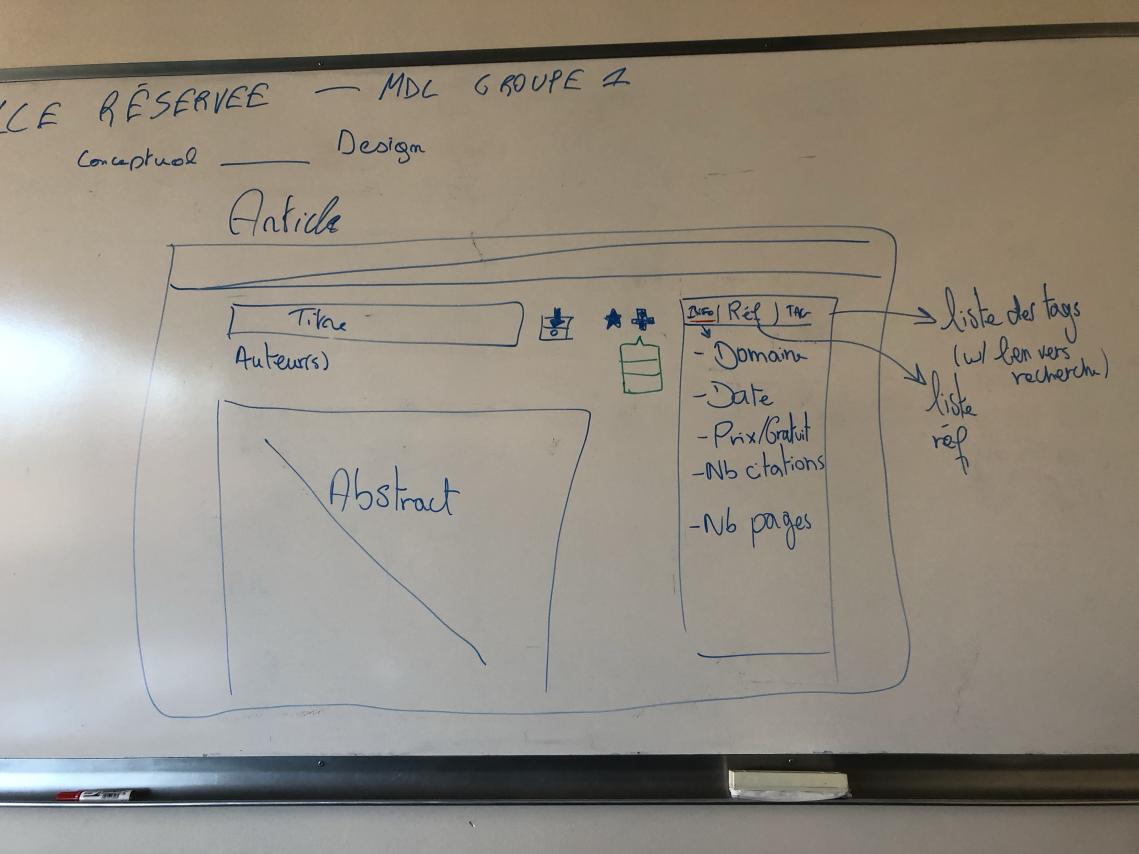 RÉSERVEE — MDL GROUPE 1
Conceptual ___ Design
Article
Titre
Auteur(s)
Abstract
INFO | Réf | TAG
- Domaine
- Date
- Prix/Gratuit
- Nb citations
- Nb pages
liste des tags
(w/ lien vers
recherche)
liste
réf